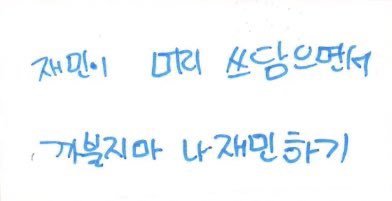 재민이 머리 쓰담으면서
까불지마 나재민하기